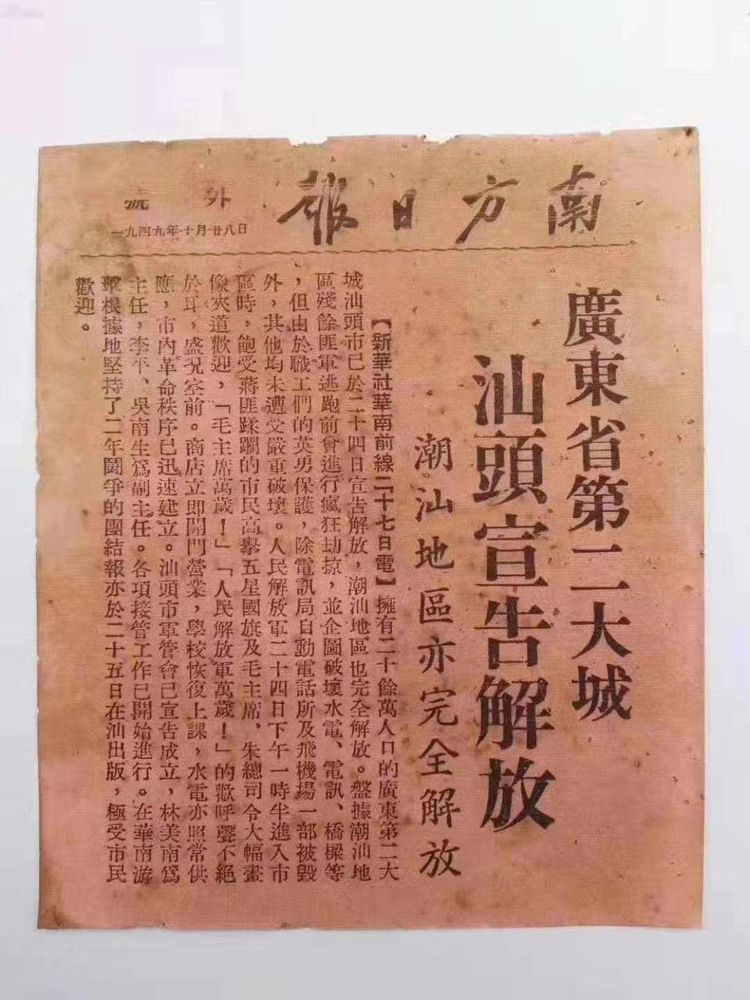 南方日報
號外
一九四九年十月廿八日
廣東省第二大城
汕頭宣告解放
潮汕地區亦完全解放
【新華社華南前線二十七日電】擁有二十餘萬人口的廣東第二大
城汕頭市已於二十四日宣告解放，潮汕地區也完全解放。盤據潮汕地
區殘餘匪軍逃跑前曾進行瘋狂劫掠，並企圖破壞水電、電訊、橋樑等
，但由於職工們的英勇保護，除電訊局自動電話所及飛機場一部被毀
外，其他均未遭受嚴重破壞。人民解放軍二十四日下午一時半進入市
區時，飽受蔣匪蹂躪的市民高擧五星國旗及毛主席、朱總司令大幅畫
像夾道歡迎，「毛主席萬歲！」「人民解放軍萬歲！」的歡呼聲不絕
於耳，盛況空前。商店立即開門營業，學校恢復上課，水電亦照常供
應，市內革命秩序已迅速建立。汕頭市軍管會已宣告成立，林美南爲
主任，李平、吳南生爲副主任。各項接管工作已開始進行。在華南游
擊根據地堅持了二年鬪爭的團結報亦於二十五日在汕出版，極受市民
歡迎。